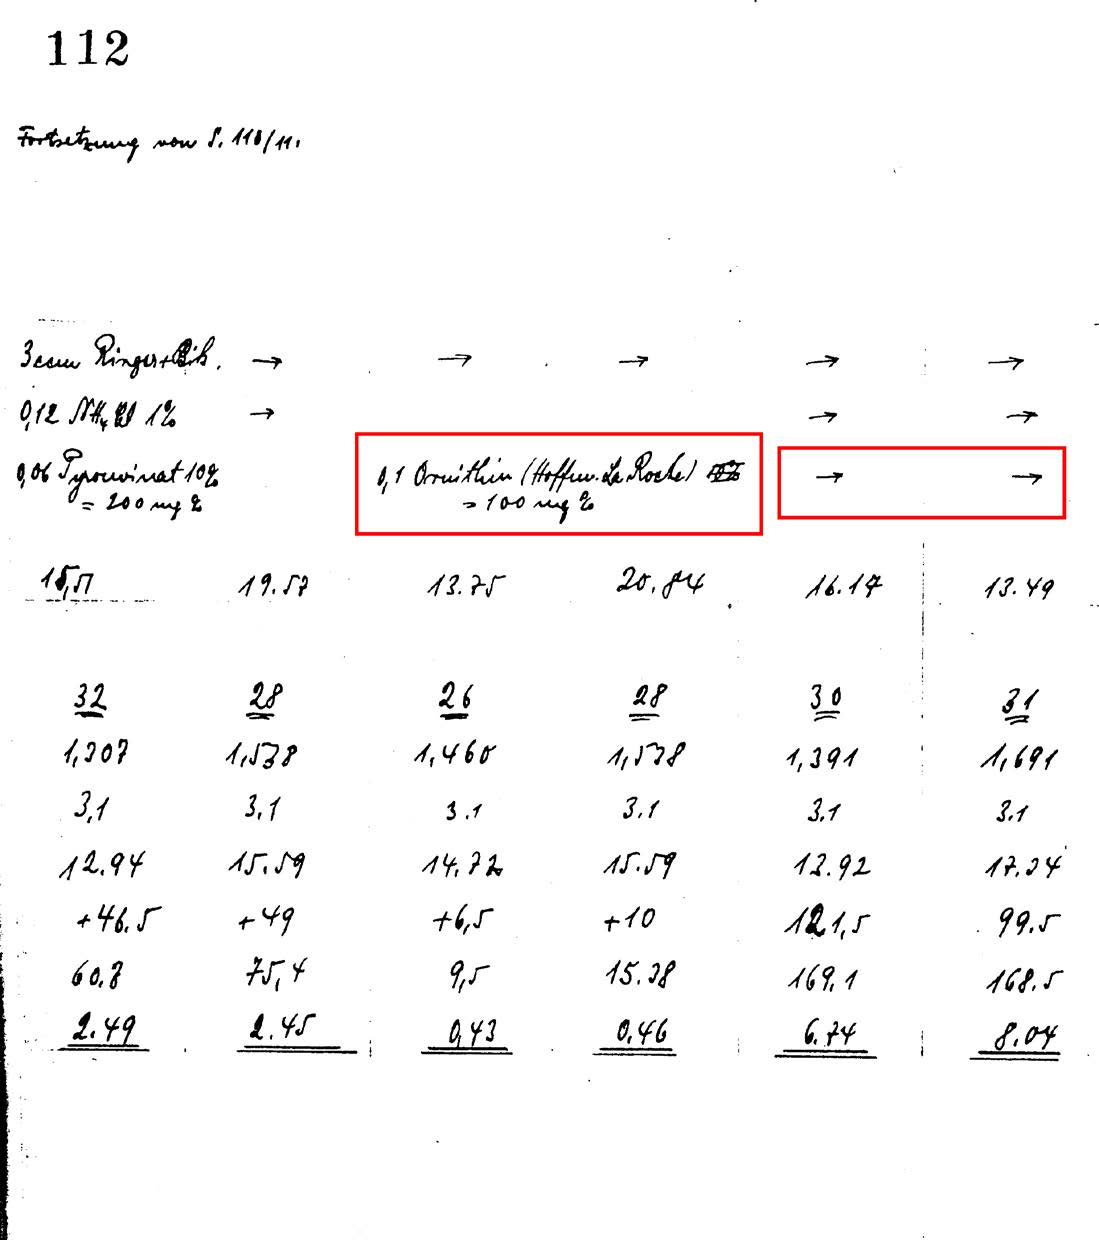 112
Fortsetzung von S. 110/11.
3 ccm Ringer + Bik. → → → → →
0,12 NH₄Cl 1% → → →
0,06 Pyrouvinat 10% 0,1 Ornithin (Hoffm. La Roche) → →
= 200 mg % = 100 mg %
19.57 13.75 20.84 16.17 13.49
32 28 26 28 30 31
1,307 1,538 1,460 1,538 1,391 1,691
3,1 3.1 3.1 3.1 3.1 3.1
12.94 15.59 14.72 15.59 13.92 17.34
+46.5 +49 +6,5 +10 121,5 99.5
60.8 75,4 9,5 15.38 169,1 168.5
2.49 2.45 0,43 0.46 6.74 8.04